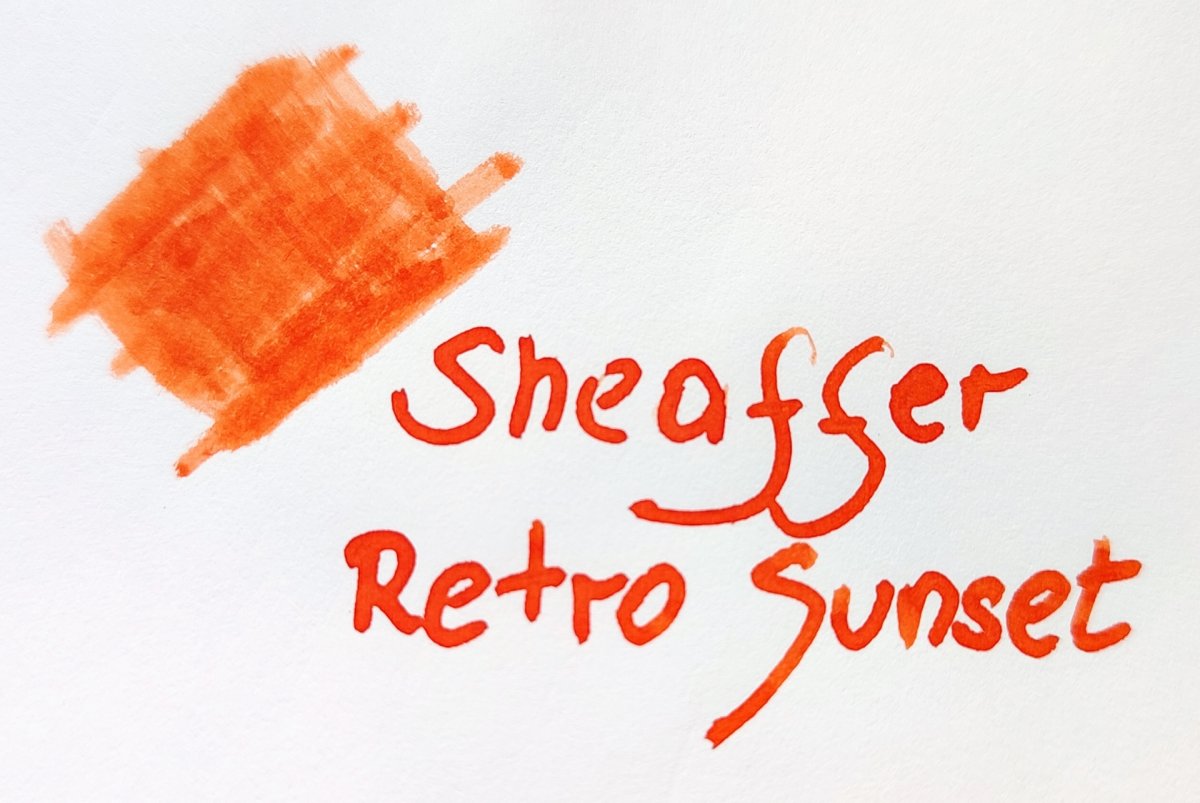 Sheaffer
Retro Sunset